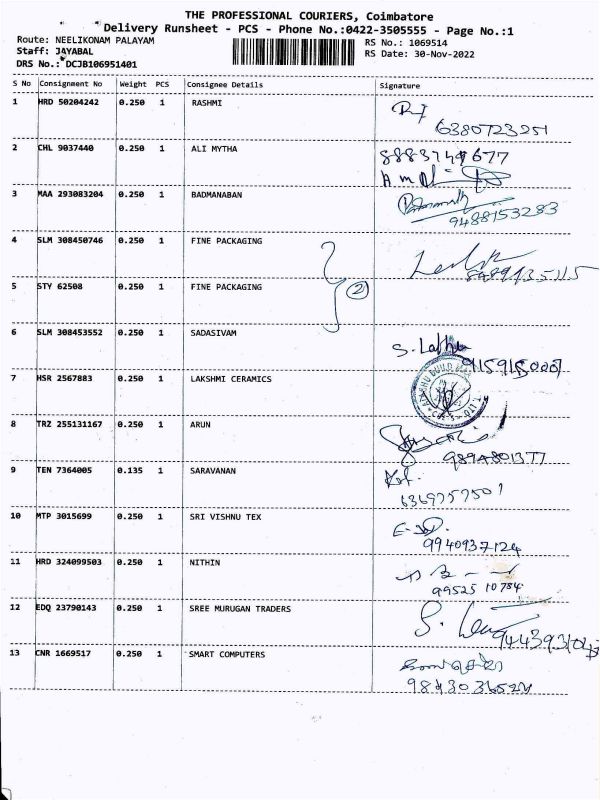 THE PROFESSIONAL COURIERS, Coimbatore
Delivery Runsheet - PCS - Phone No.:0422-3505555 - Page No.:1
Route: NEELIKONAM PALAYAM
RS No.: 1069514
Staff: JAYABAL
RS Date: 30-Nov-2022
DRS No.: DCJB106951401
S No Consignment No Weight PCS Consignee Details Signature
1 HRD 50204242 0.250 1 RASHMI
6380723251
2 CHL 9037440 0.250 1 ALI MYTHA
3 MAA 293083204 0.250 1 BADMANABAN
9488153283
4 SLM 308450746 0.250 1 FINE PACKAGING
2
5 STY 62508 0.250 1 FINE PACKAGING
6 SLM 308453552 0.250 1 SADASIVAM
S. Latha
7 HSR 2567883 0.250 1 LAKSHMI CERAMICS
8 TRZ 255131167 0.250 1 ARUN
9894801377
9 TEN 7364005 0.135 1 SARAVANAN
6369757501
10 MTP 3015699 0.250 1 SRI VISHNU TEX
9940937124
11 HRD 324099503 0.250 1 NITHIN
99525 10754
12 EDQ 23790143 0.250 1 SREE MURUGAN TRADERS
13 CNR 1669517 0.250 1 SMART COMPUTERS